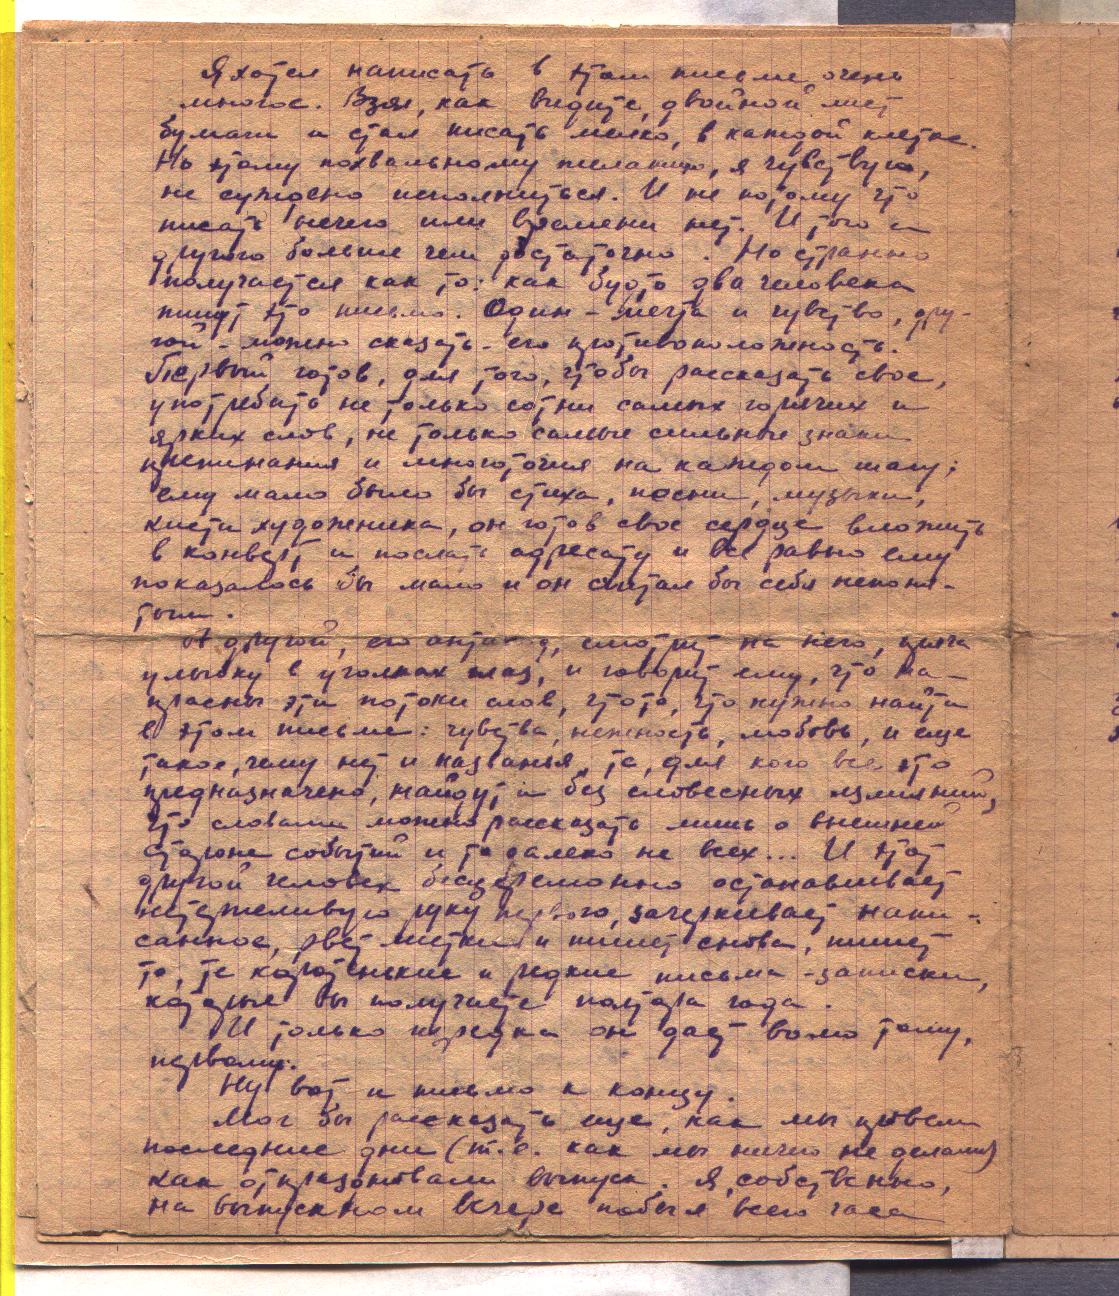 Я хотел написать в этом письме очень
многое. Взял, как видите, двойной лист
бумаги и стал писать мелко, в каждой клетке.
Но этому похвальному желанию, я чувствую,
не суждено исполниться. И не потому что
писать нечего или времени нет. И того и
другого больше чем достаточно. Но странно
получается как то: как будто два человека
пишут это письмо. Один - мечта и чувство, дру-
гой - можно сказать - его противоположность.
Первый готов, для того, чтобы рассказать свое,
употребить не только сотни самых горячих и
ярких слов, не только самые сильные знаки
препинания и многоточия на каждом шагу;
ему мало было бы стиха, песни, музыки,
кисти художника, он готов свое сердце вложить
в конверт и послать адресату и все равно ему
показалось бы мало и он считал бы себя непоня-
тым.
А другой, его антипод, смотрит на него, пряча
улыбку в уголках глаз, и говорит ему, что на-
прасны эти потоки слов, что то, что нужно найти
в этом письме: чувства, нежность, любовь, и еще
такое, чему нет и названья, та, для кого все это
предназначено, найдут и без словесных излияний,
что словами можно рассказать лишь о внешней
стороне событий и то далеко не всех... И этот
другой человек бесцеремонно останавливает
нетерпеливую руку первого, зачеркивает напи-
санное, рвет листки и пишет снова, пишет
то, те коротенькие и редкие письма-записки,
которые Вы получаете полтора года.
И только изредка он дает волю тому,
первому.
Ну вот и письмо к концу.
Мог бы рассказать еще, как мы провели
последние дни (т.е. как мы ничего не делали)
как отпраздновали выпуск. Я, собственно,
на выпускном вечере побыл всего часа